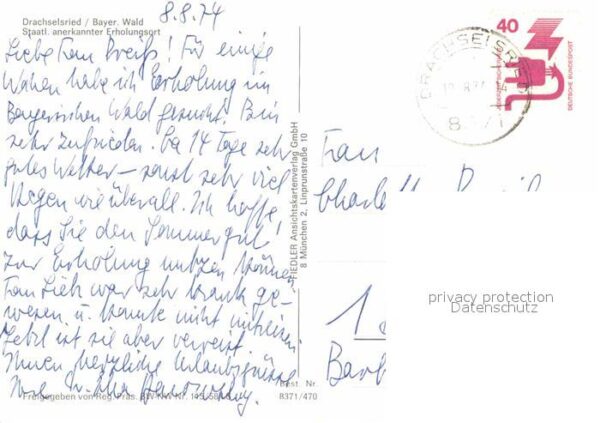 Drachselsried / Bayer. Wald
Staatl. anerkannter Erholungsort
8.8.74
Liebe Frau Preiß! Für einige
Wochen habe ich Erholung im
Bayerischen Wald gesucht. Bin
sehr zufrieden. Ca 14 Tage sehr
gutes Wetter – sonst sehr viel
Regen wie überall. Ich hoffe,
dass Sie den Sommer gut
zur Erholung nutzen können.
Frau Lieb war sehr krank ge-
wesen u. konnte nicht mitreisen.
Jetzt ist sie aber verreist.
Ihnen herzliche Urlaubsgrüsse
Ihre
Freigegeben von Reg. Präs.
Best. Nr.
8371/470
FIEDLER Ansichtskartenverlag GmbH
8 München 2, Linprunstraße 10
40
DEUTSCHE BUNDESPOST
DRACHSELSRIED
Frau
1
privacy protection
Datenschutz